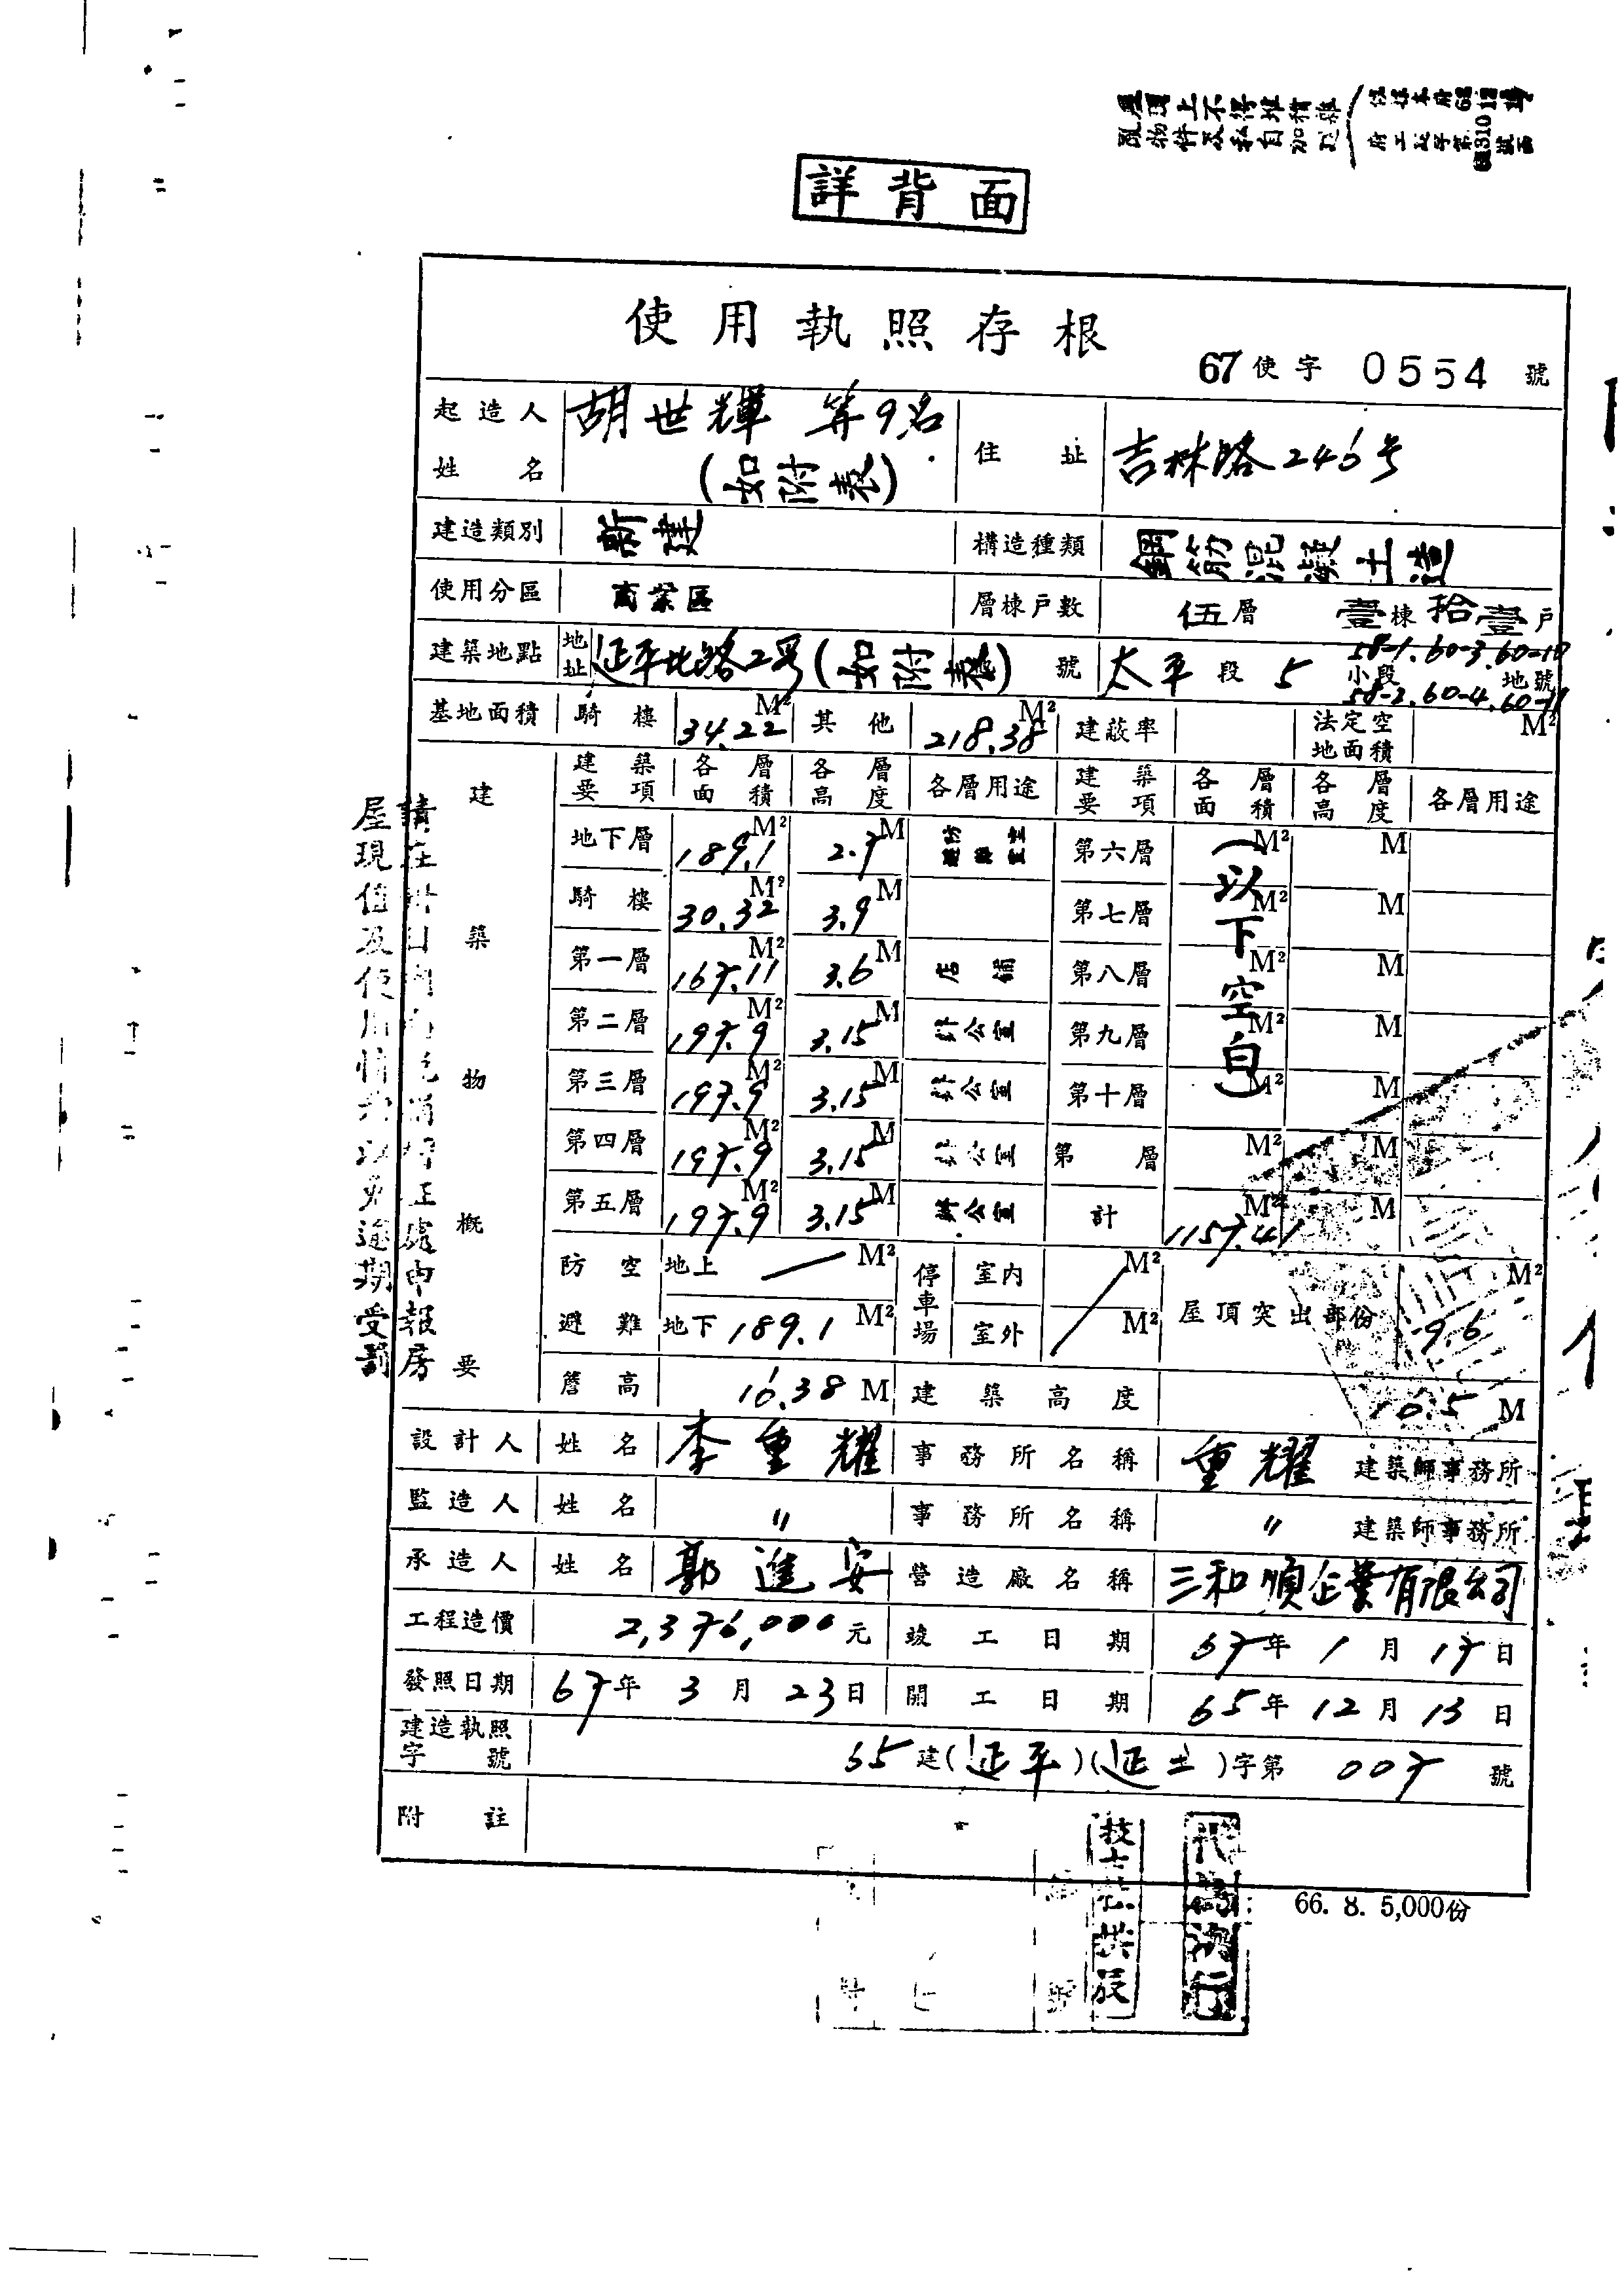 屋頂上不得堆積雜
物件及私自加建
詳背面
使用執照存根
67使字 0554 號
起造人姓名 胡世輝 等9名 (如附表) 住址 吉林路246号
建造類別 新建 構造種類 鋼筋混凝土造
使用分區 商業區 層棟戶數 伍層 壹棟拾壹戶
建築地點 地址 延平北路2段(如附表)號 太平段 5 小段 58-1.60-3.60-10 58-3.60-4.60-11 地號
基地面積 騎樓 34.22 M² 其他 218.38 M² 建蔽率 法定空地面積 M²
建築物概要
建築要項 各層面積 各層高度 各層用途 建築要項 各層面積 各層高度 各層用途
地下層 189.1 M² 2.7 M 第六層 M² M
騎樓 30.32 M² 3.9 M 第七層 M² M
第一層 167.11 M² 3.6 M 店舖 第八層 M² M
第二層 197.9 M² 3.15 M 辦公室 第九層 M² M
第三層 197.9 M² 3.15 M 辦公室 第十層 M² M
第四層 197.9 M² 3.15 M 辦公室 第 層 M² M
第五層 197.9 M² 3.15 M 辦公室 計 1157.41 M² M
(以下空白)
防空避難 地上 — M² 停車場 室內 M² 屋頂突出部份 M²
地下 189.1 M² 室外 M² 9.6
簷高 16.38 M 建築高度 M
設計人 姓名 李重耀 事務所名稱 重耀 建築師事務所
監造人 姓名 〃 事務所名稱 〃 建築師事務所
承造人 姓名 郭進安 營造廠名稱 三和順企業有限公司
工程造價 2,376,000元 竣工日期 67年1月17日
發照日期 67年3月23日 開工日期 65年12月13日
建造執照字號 65建(延平)(延土)字第 007 號
附註
代為決行
66. 8. 5,000份